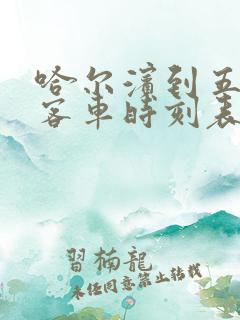 哈尔滨到五
客车时刻表
習楠龍
未经同意禁止转载